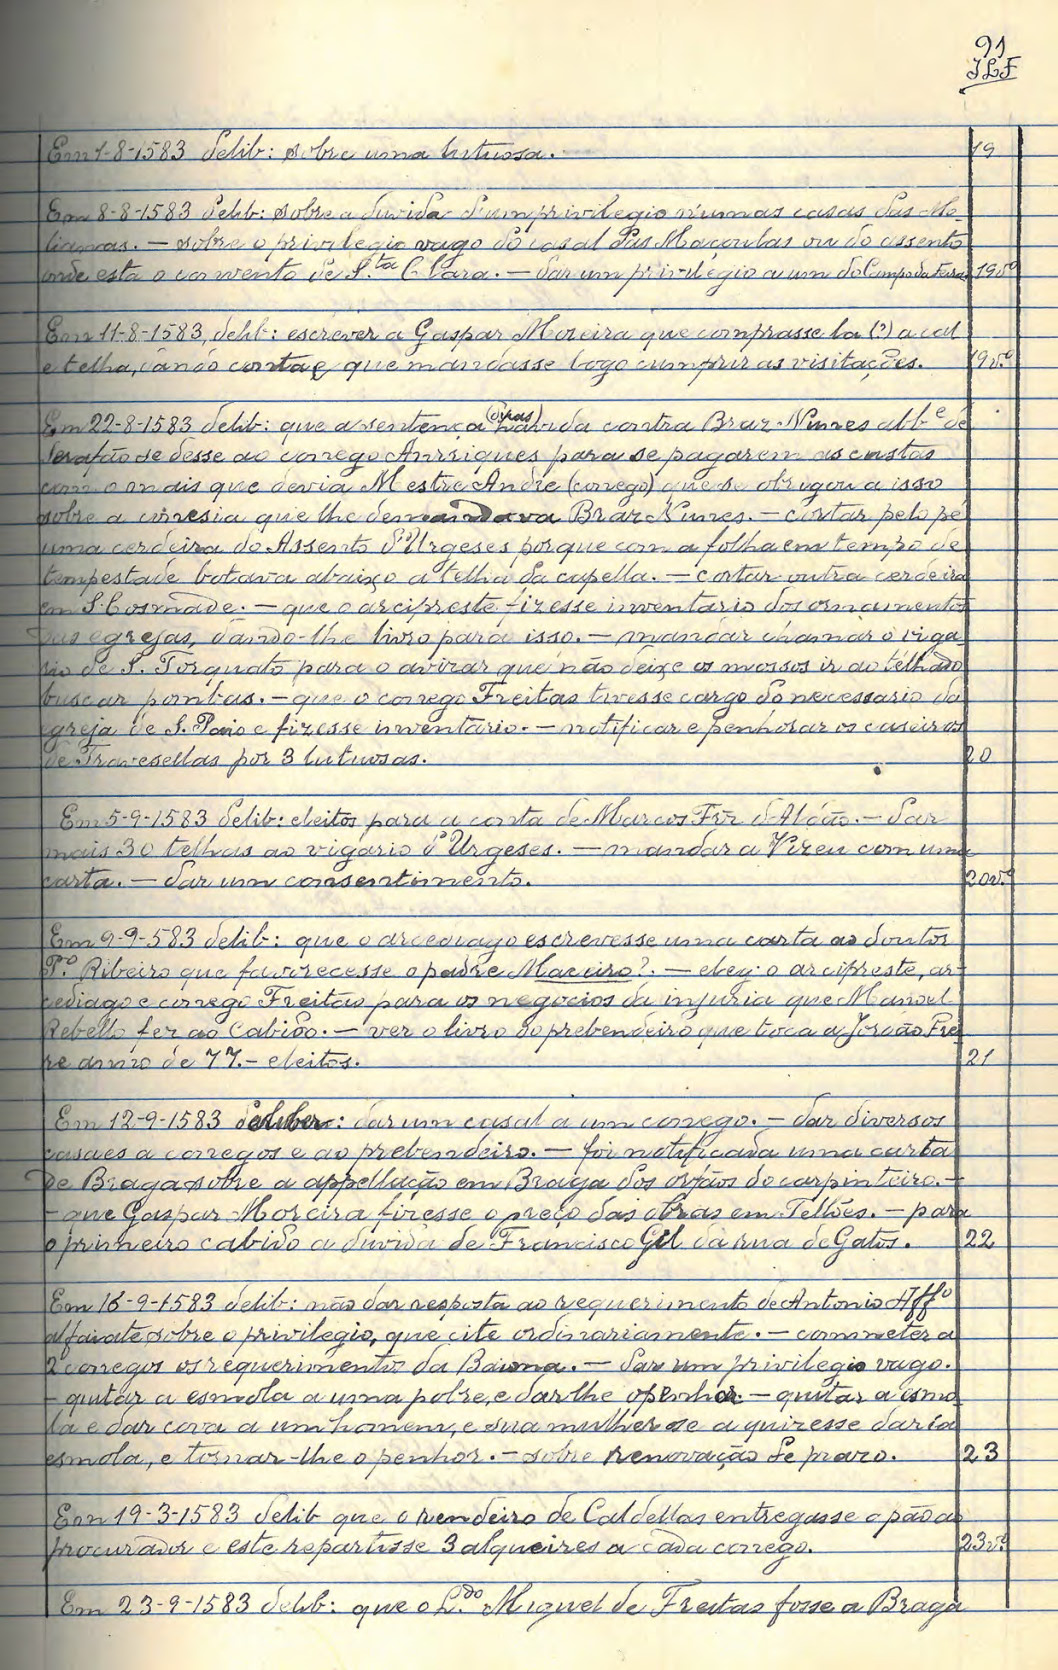 91
JLF
Em 1-8-1583 delib: sobre uma lutuosa. 19
Em 8-8-1583 delib: sobre a duvida d'um privilegio n'umas casas das Me-
lianas. — sobre o privilegio vago do casal das Maçoulas ou do assento
onde está o convento de S.ta Clara. — dar um privilegio a um do Campo da Feira 19v.º
Em 11-8-1583, delib: escrever a Gaspar Moreira que comprasse la (?) a cal
e telha, dando conta e que mandasse logo cumprir as visitações. 19v.º
Em 22-8-1583 delib: que a sentença (diras) havida contra Braz Nunes abb.e de
Serafão se desse ao conego Anrriques para se pagarem as custas
com o mais que devia Mestre André (conego) que se obrigou a isso
sobre a conesia que lhe demandava Braz Nunes. — cortar pelo pé
uma cerdeira do Assento d'Urgeses porque com a folha em tempo de
tempestade botava abaixo a telha da capella. — cortar outra cerdeira
em S. Cosmade. — que o arcipreste fizesse inventario dos ornamentos
das egrejas, dando-lhe livro para isso. — mandar chamar o viga-
rio de S. Torquato para o avizar que não deixe os mossos ir ao telhado
buscar pombas. — que o conego Freitas tivesse cargo do necessario da
egreja de S. Paio e fizesse inventario. — notificar e penhorar os caseiros
de Travesellas por 3 lutuosas. 20
Em 5-9-1583 delib: eleitos para a conta de Marcos Frz d'Aldão. — dar
mais 30 telhas ao vigario d'Urgeses. — mandar a Vizeu com uma
carta. — dar um consentimento. 20v.º
Em 9-9-583 delib: que o arcediago escrevesse uma carta ao doutor
P.º Ribeiro que favorecesse o padre Maceiro?. — eleg: o arcipreste, ar-
cediago e conego Freitas para os negocios da injuria que Manoel
Rebello fez ao Cabido. — ver o livro do prebendeiro que toca a Jordão Frei-
re anno de 77. — eleitos. 21
Em 12-9-1583 deliber: dar um casal a um conego. — dar diversos
casaes a conegos e ao prebendeiro. — foi notificada uma carta
de Braga sobre a appellação em Braga dos orfãos do carpinteiro. —
— que Gaspar Moreira fizesse o preço das obras em Telhões. — para
o primeiro cabido a duvida de Francisco Gil da rua de Gatos. 22
Em 16-9-1583 delib: não dar resposta ao requerimento de Antonio Aff.º
alfaiate sobre o privilegio, que cite ordinariamente. — commeter a
2 conegos os requerimentos da Baiona. — dar um privilegio vago.
— quitar a esmola a uma pobre, e dar lhe o penhor — quitar a esmo-
la e dar cova a um homem, e sua mulher se a quizesse daria
esmola, e tornar-lhe o penhor. — sobre renovação de prazo. 23
Em 19-3-1583 delib que o rendeiro de Caldellas entregasse o pão ao
procurador e este repartisse 3 alqueires a cada conego. 23v.º
Em 23-9-1583 delib: que o L.do Miguel de Freitas fosse a Braga